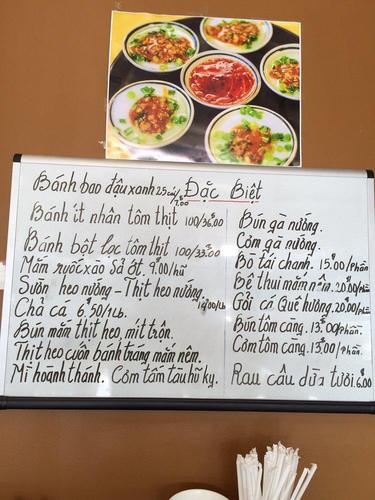 Bánh bao đậu xanh 25 cái/7.00 Đặc Biệt
Bánh ít nhân tôm thịt 100/36.00
Bánh bột lọc tôm thịt 100/33.00
Mắm ruốc xào Sả ớt. 9.00/hũ
Sườn heo nướng - Thịt heo nướng.
14.00/Lb
Chả cá 6.50/1Lb.
Bún mắm thịt heo, mít trộn.
Thịt heo cuốn bánh tráng mắm nêm.
Mì hoành thánh. Cơm tấm tàu hũ ky.
Bún gà nướng.
Cơm gà nướng.
Bò tái chanh. 15.00/phần
Bê thui mắm nêm. 20.00/phần
Gỏi cá Quê hương. 20.00/phần
Bún tôm càng. 13.00/phần.
Cơm tôm càng. 13.00/phần.
Rau câu dừa tươi. 6.00